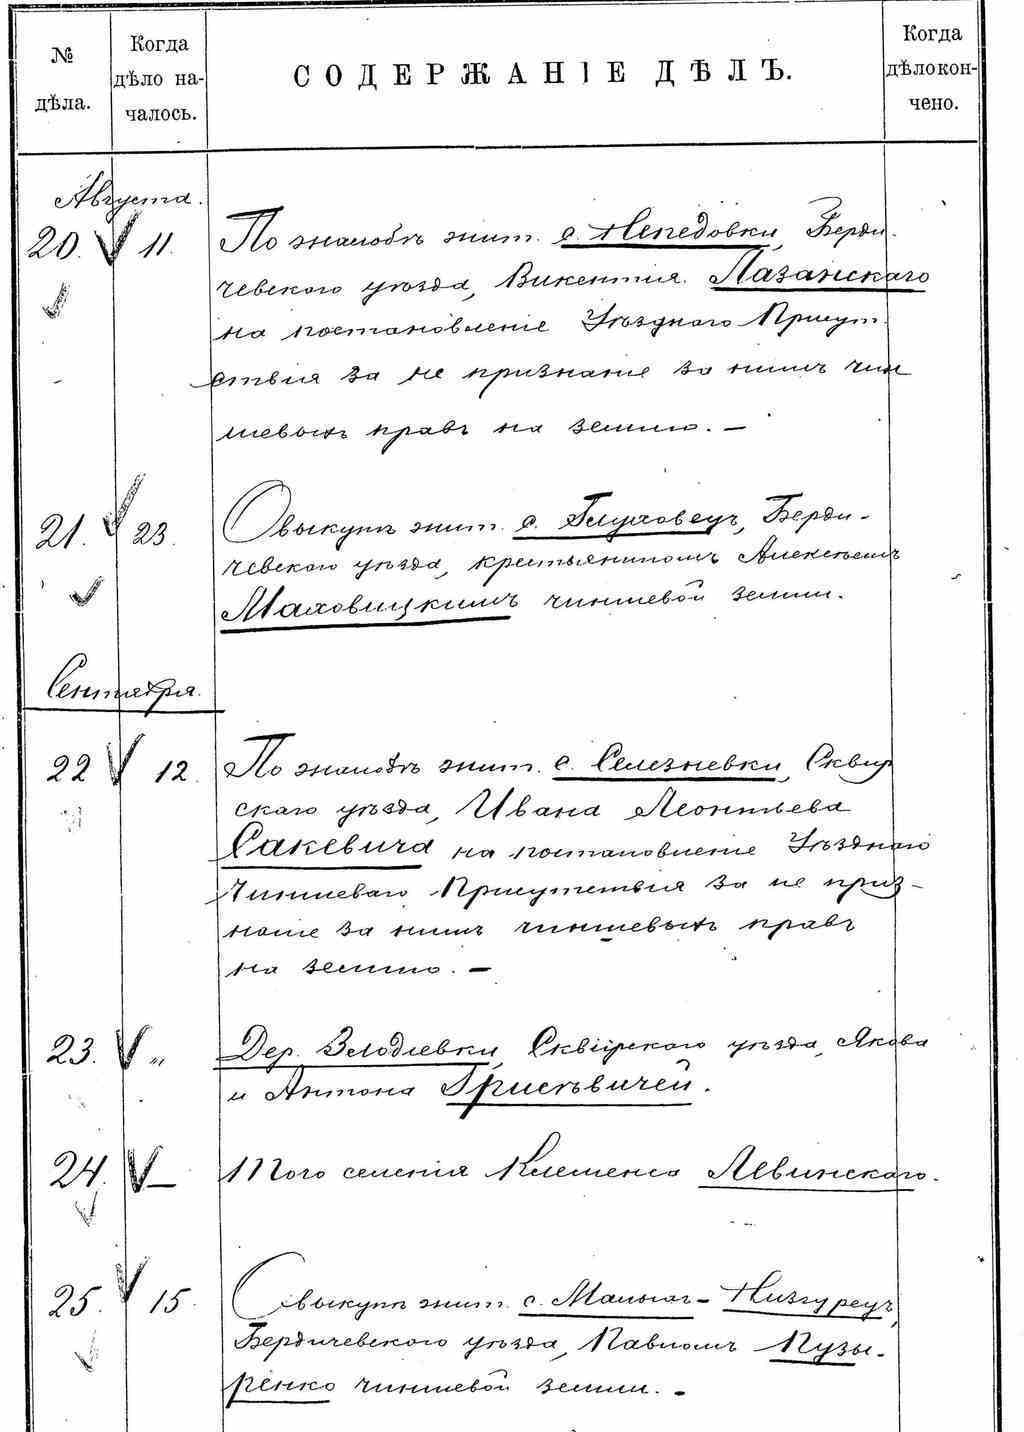 № дѣла.
Когда дѣло на-
чалось.
СОДЕРЖАНІЕ ДѢЛЪ.
Когда дѣло кон-
чено.
Августа.
20. 11. По жалобѣ жит. с. Непедовки, Берди-
чевскаго уѣзда, Викентія Лазанскаго
на постановленіе Уѣзднаго Присут-
ствія за не признаніе за нимъ чин
шевыхъ правъ на землю. —
21. 23. О выкупѣ жит. с. Глуховецъ, Берди-
чевскаго уѣзда, крестьяниномъ Алексѣемъ
Маховицкимъ чиншевой земли.
Сентября.
22 12. По жалобѣ жит. с. Селезневки, Сквир
скаго уѣзда, Ивана Леонтьева
Сакевича на постановленіе Уѣзднаго
Чиншеваго Присутствія за не приз-
наніе за нимъ чиншевыхъ правъ
на землю. —
23. „ Дер. Злодіевки, Сквирскаго уѣзда, Якова
и Антона Грисевичей.
24. — Того селенія Клеменса Левинскаго.
25. 15. О выкупѣ жит. с. Малыхъ-Низгурецъ,
Бердичевскаго уѣзда, Павломъ Пузы-
ренко чиншевой земли. —